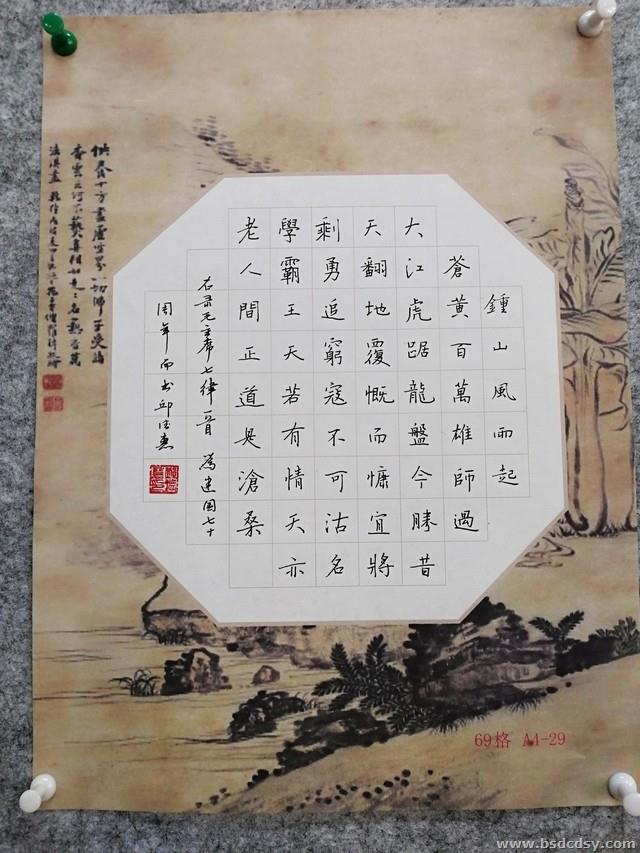 鍾山風雨起
蒼黃百萬雄師過
大江虎踞龍盤今勝昔
天翻地覆慨而慷宜將
剩勇追窮寇不可沽名
學霸王天若有情天亦
老人間正道是滄桑
右录毛主席七律一首 為建国七十
周年而书 邱
供養十方盡虛空界一切佛子受
69格 A4-29
www.bsdcdsy.com